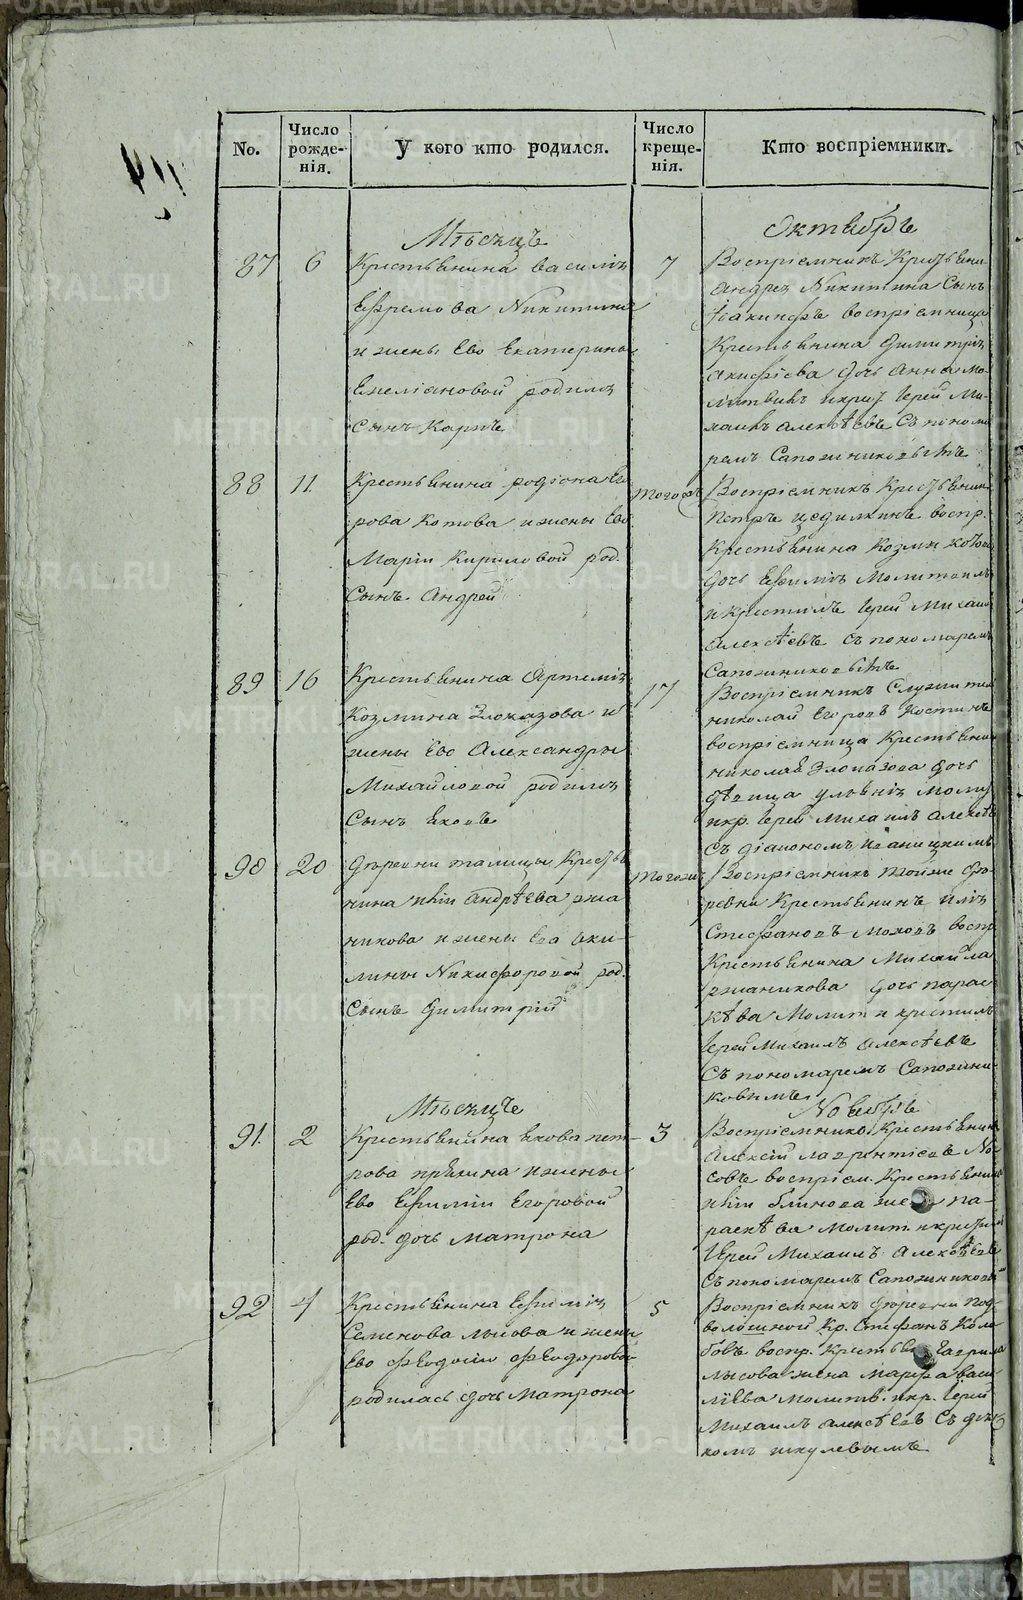 No.
Число рожде-нія.
У кого кто родился.
Число креще-нія.
Кто воспріемники.
Мѣсяцъ
Октябрь
87
6
Крестьянина Василія
Ефремова Никитина
и жены Ево Екатерины
Емеліановой родился
сынъ Карпъ
7
Воспріемникъ Крестьяни
Андрея Никитина Сынъ
Іакинфъ воспріемница
Крестьянина Димитрія
дочь Анна мо-
Іерей Ми-
хаилъ Алексѣевъ Съ понома
ремъ Сапожниковымъ
88
11
Крестьянина Родіона Его
рова Котова и жены Ево
Маріи Кириловой род.
Сынъ Андрей
Тогожъ
Воспріемникъ Крестьянин
Петръ воспр.
Крестьянина Козмы Котова
дочь Евфимія Молитвилъ
и крестилъ Іерей Михаил
Алексѣевъ Съ пономаремъ
Сапожниковымъ
89
16
Крестьянина Артемія
Козмина Злоказова и
жены Ево Александры
Михайловой родился
Сынъ Яковъ
17
Воспріемникъ Служител
Николай Егоровъ Костинъ
воспріемница Крестьяни
Николая Злоказова дочь
дѣвица Ульянія молит
икр. Іерей Михаилъ Алексѣе
Съ діакономъ
90
20
Деревни Талицы Крестья
нина Иліи Андрѣева Ржа
никова и жены Ево Аки-
лины Никифоровой род.
Сынъ Димитрій
Тогожъ
Воспріемникъ тойже де-
ревни Крестьянинъ Илія
Стефановъ Моховъ воспр
Крестьянина Михайла
Ржаникова дочь Парас
кѣва Молит и крестилъ
Іерей Михаилъ Алексѣевъ
Съ пономаремъ Сапожни-
ковымъ
Мѣсяцъ
Ноябрь
91.
2
Крестьянина Якова Пет-
рова Пряхина и жены
Ево Евфиміи Егоровой
род. дочь Матрона
3
Воспріемникъ Крестьянин
Алексій Лаврентіевъ Но-
совъ воспріем. Крестьянин
Иліи Блинова жена Па-
раскѣва Молит. и крестил
Іерей Михаилъ Алексѣевъ
Съ пономаремъ Сапожников
92
4
Крестьянина Евфимія
Семенова Лысова и жены
Ево Феодосіи Феодоровой
родилась дочь Матрона
5
Воспріемникъ деревни Под-
волошной Кр. Стефанъ Коло
бовъ воспр. Крестьян Гаврила
Лысова жена Марфа Васи
ліева Молитв. икр. Іерей
Михаилъ Алексѣевъ Съ дья
комъ Шкулевымъ
METRIKI.GASO-URAL.RU